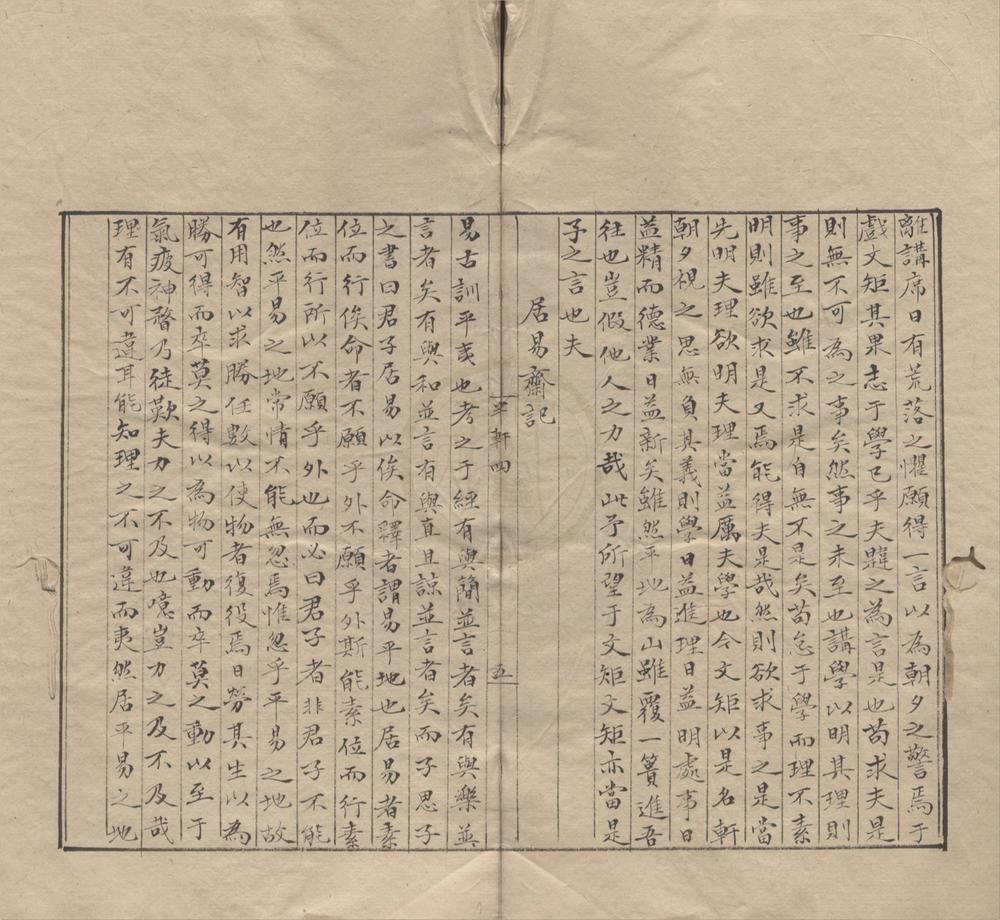 離講席日有荒落之懼願得一言以為朝夕之警焉于
戲文矩其果志于學已乎夫韙之為言是也苟求夫是
則無不可為之事矣然事之未至也講學以明其理則
事之至也雖不求是自無不是矣苟怠于學而理不素
明則雖欲求是又焉能得夫是哉然則欲求事之是當
先明夫理欲明夫理當益厲夫學也今文矩以是名軒
朝夕視之思無負其義則學日益進理日益明處事日
益精而德業日益新矣雖然平地為山雖覆一簣進吾
往也豈假他人之力哉此予所望于文矩文矩亦當是
子之言也夫
居易齋記
半軒四
五
易古訓平夷也考之于經有與簡並言者矣有與樂並
言者矣有與和並言有與直且諒並言者矣而子思子
之書曰君子居易以俟命釋者謂易平地也居易者素
位而行俟命者不願乎外不願乎外斯能素位而行素
位而行所以不願乎外也而必曰君子者非君子不能
也然平易之地常情不能無忽焉惟忽乎平易之地故
有用智以求勝任數以使物者復役焉日勞其生以為
勝可得而卒莫之得以為物可動而卒莫之動以至于
氣疲神瞀乃徒歎夫力之不及也噫豈力之及不及哉
理有不可違耳能知理之不可違而夷然居平易之地